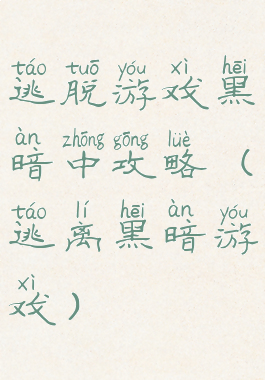 táo tuō yóu xì hēi
逃脱游戏黑
àn zhōng gōng lüè
暗中攻略（
táo lí hēi àn yóu
逃离黑暗游
xì
戏）